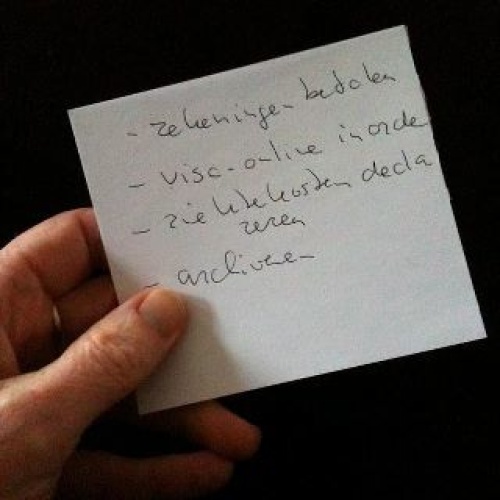 - rekeningen betalen
- visa-online in orde
- ziektekosten decla
reren
- archiveren